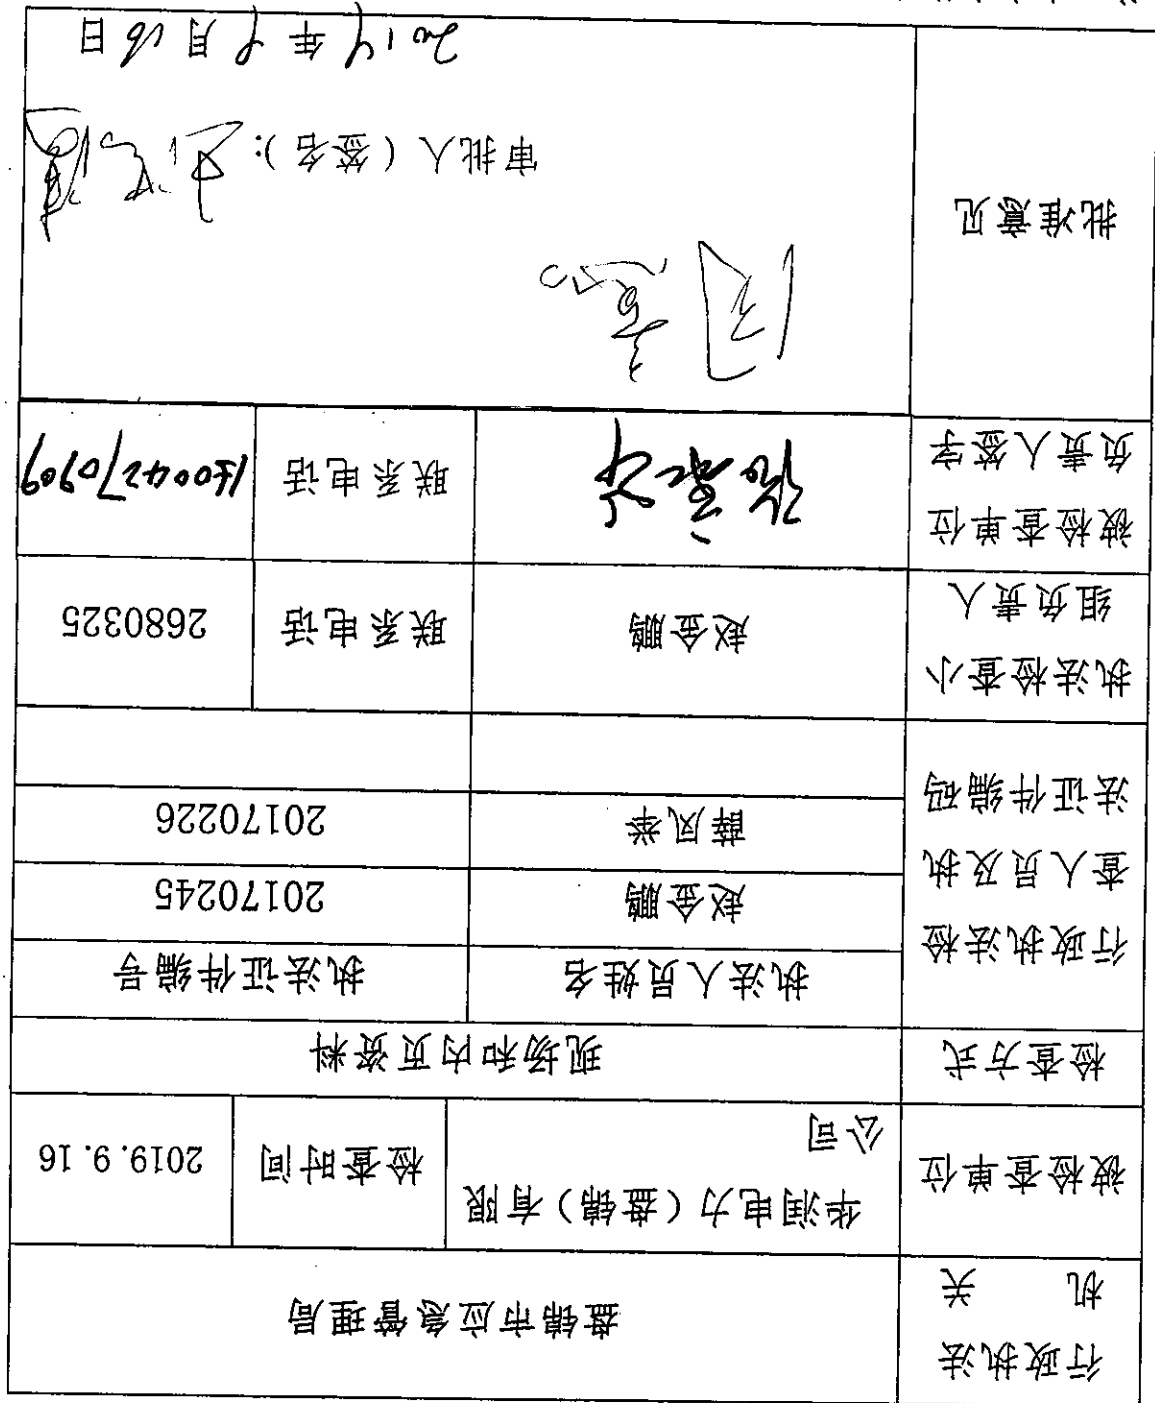 行政执法
机 关
盘锦市应急管理局
被检查单位
华润电力（盘锦）有限
公司
检查时间
2019.9.16
检查方式
现场和内页资料
行政执法检
查人员及执
法证件编码
执法人员姓名
执法证件编号
赵金鹏
20170245
薛凤举
20170226
执法检查小
组负责人
赵金鹏
联系电话
2680325
被检查单位
负责人签字
联系电话
批准意见
同意
审批人（签名）：
2019年9月16日